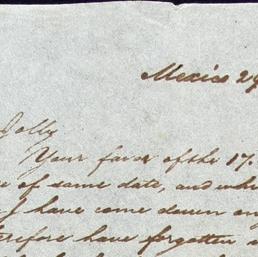 Mexico 29
Dolly
Your favor of the 17.
of same date, and
I have come down
have forgotten